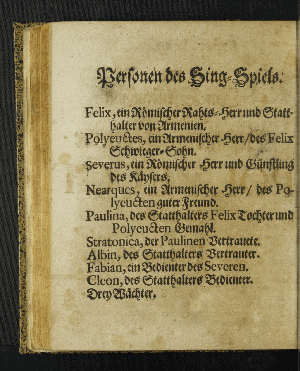 Personen des Sing-Spiels.
Felix, ein Römischer Rahts-Herr und Statt-
halter von Armenien.
Polyeuctes, ein Armenischer Herr/ des Felix
Schwieger-Sohn.
Severus, ein Römischer Herr und Günstling
des Käysers.
Nearques, ein Armenischer Herr/ des Po-
lyeucten guter Freund.
Paulina, des Statthalters Felix Tochter und
Polyeucten Gemahl.
Stratonica, der Paulinen Vertraute.
Albin, des Statthalters Vertrauter.
Fabian, ein Bedienter des Severen.
Cleon, des Statthalters Bedienter.
Drey Wächter.